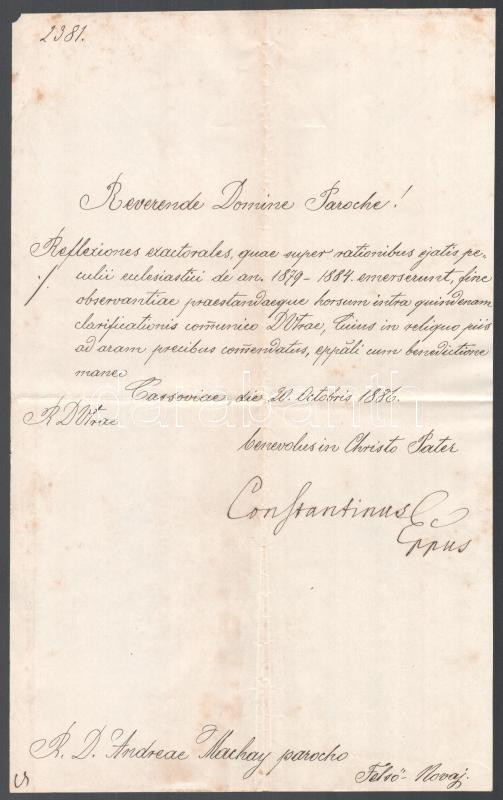 2381.
Reverende Domine Paroche!
Reflexiones exactorales, quae super rationibus ejatis pe-
culii ecclesiastici de an. 1879-1884. emerserunt, fine
observantiae praestandaeque horsum intra quindenam
clarificationis com̄unico DVtrae, Cuius in reliquo piis
ad aram precibus com̄endatus, eppāli cum benedictione
maneo
Cassoviae die 20. Octobris 1886.
R D Vtrae
benevolus in Christo Pater
Constantinus
Eppus
R. D. Andreae Machay parocho
Felső-Novaj.